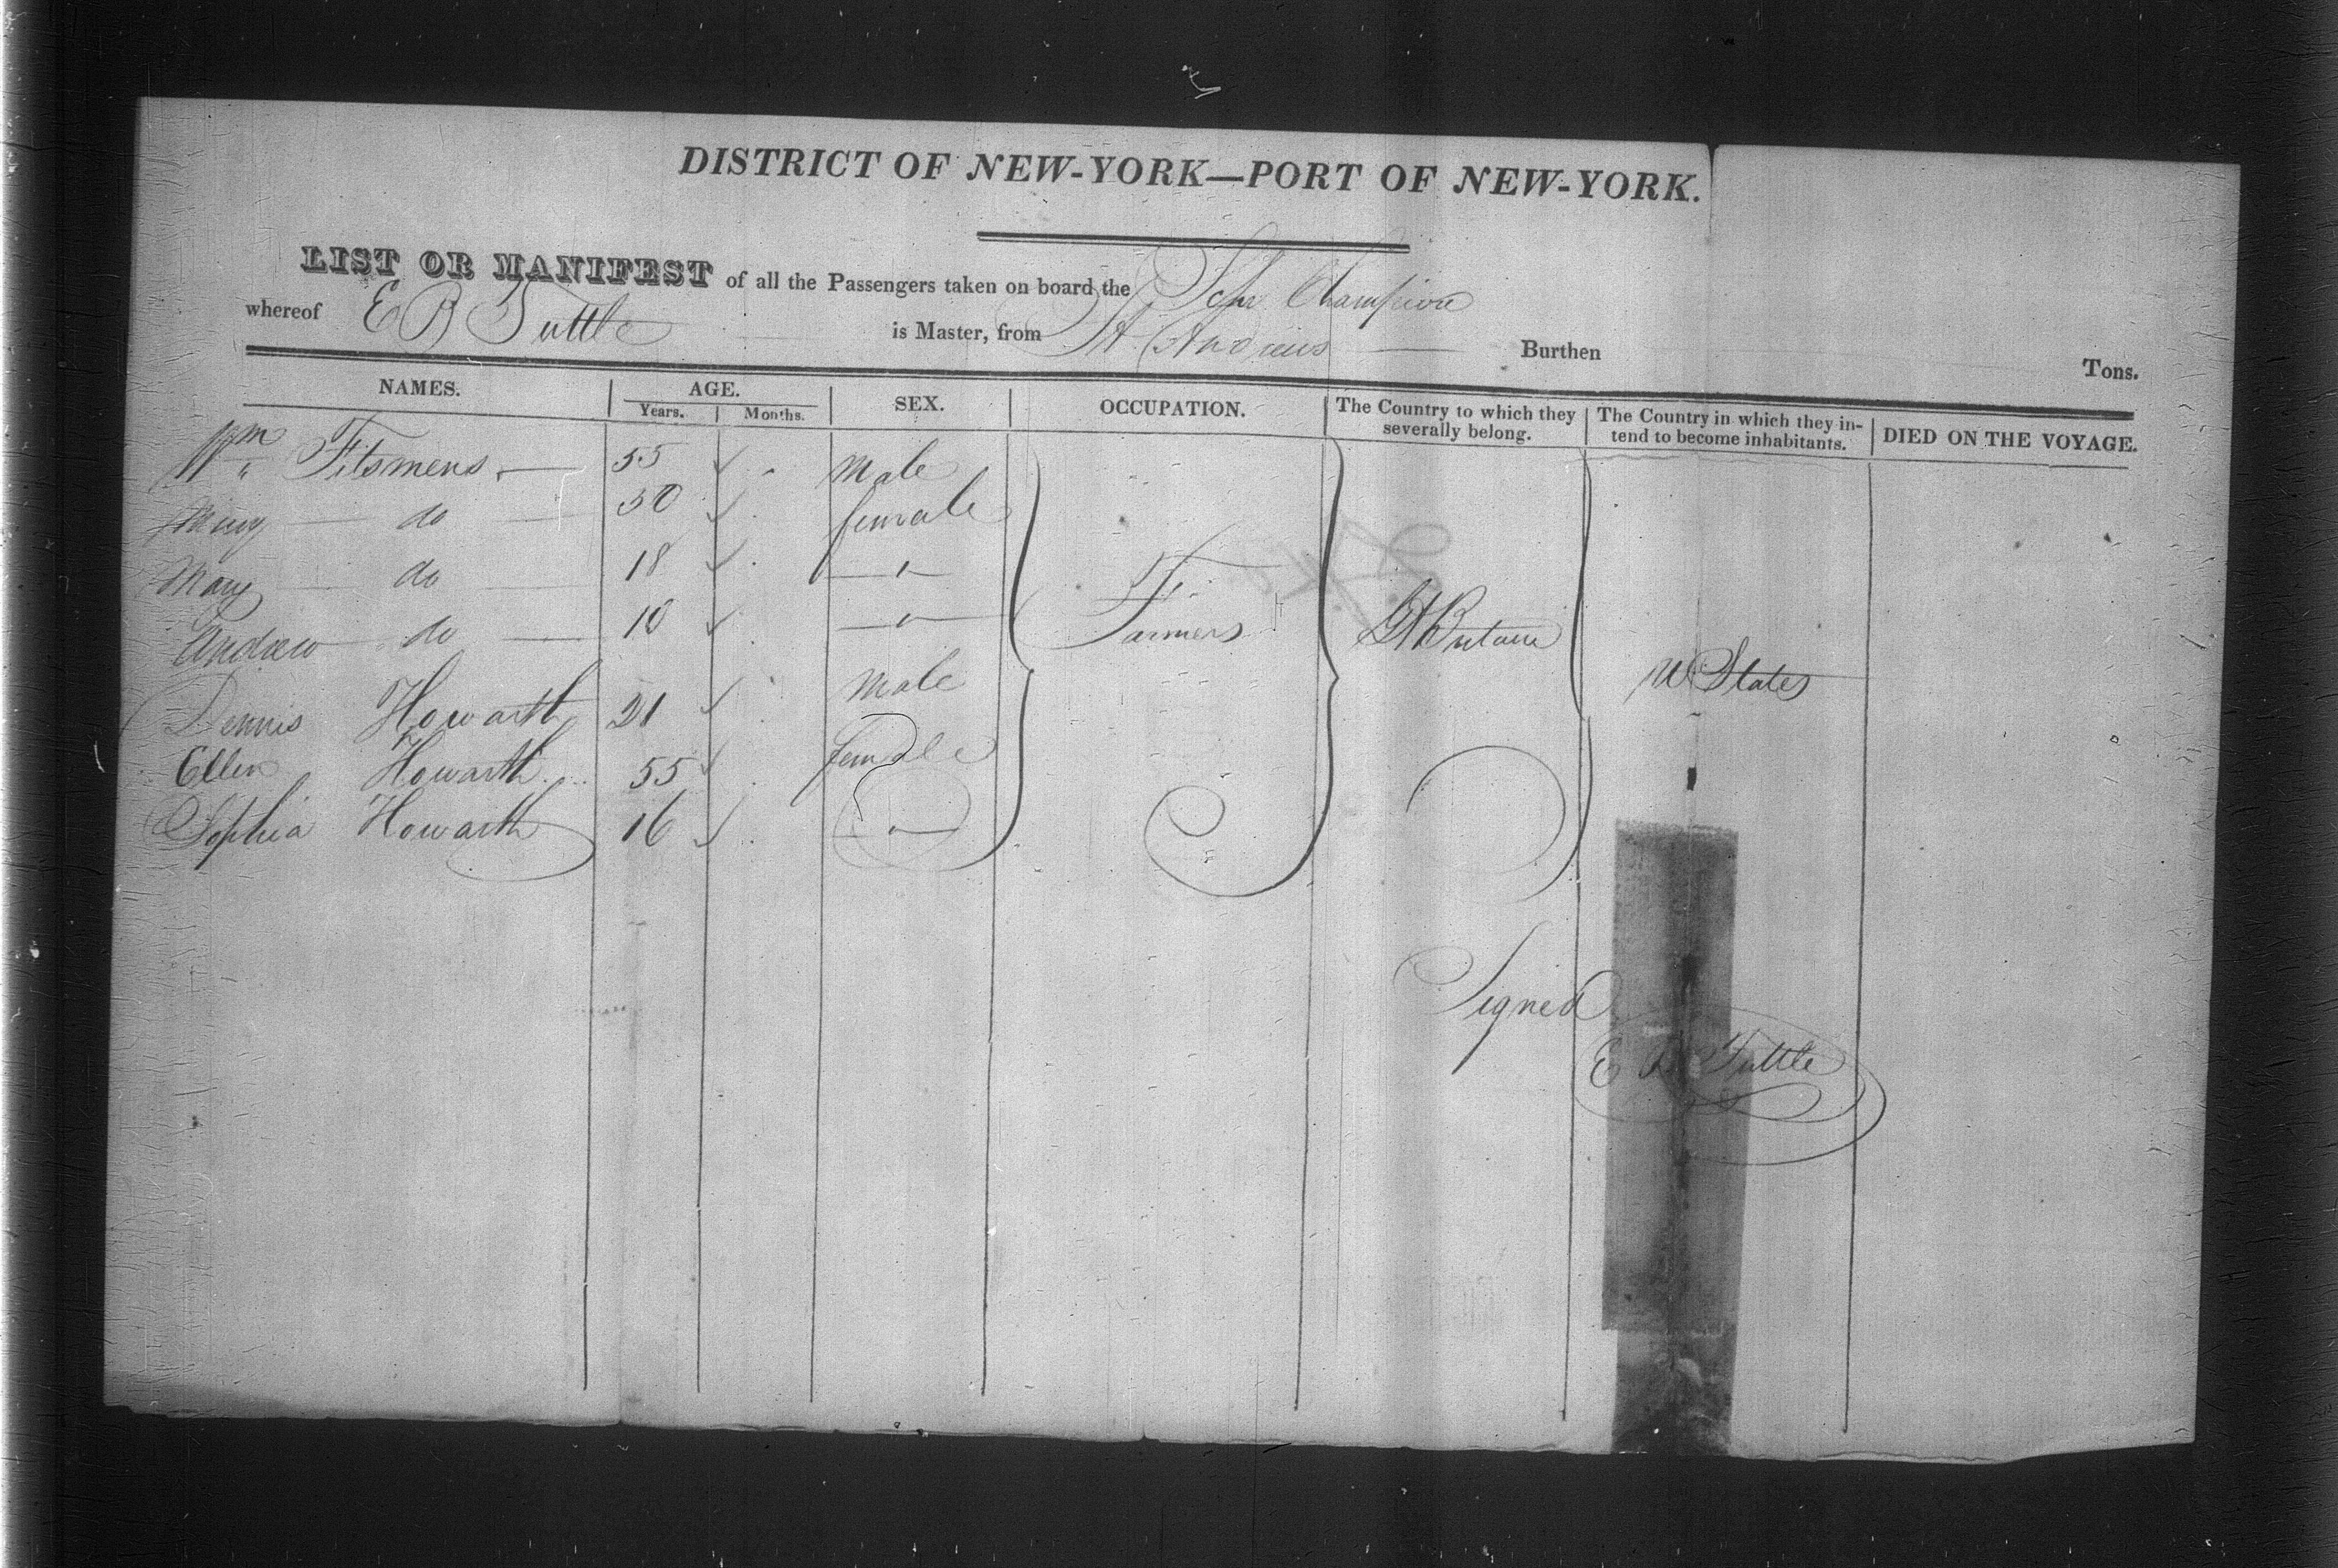 DISTRICT OF NEW-YORK—PORT OF NEW-YORK.
LIST OR MANIFEST of all the Passengers taken on board the Schr Champion
whereof E B Tuttle is Master, from St Andrews Burthen Tons.
NAMES. AGE. Years. Months. SEX. OCCUPATION. The Country to which they severally belong. The Country in which they intend to become inhabitants. DIED ON THE VOYAGE.
Wm Fitsmens 55 male
Mary do 50 female
Mary do 18 — " —
Andrew do 10 — " —
Farmers Gt Britain U States
Dennis Howarth 21 male
Ellen Howarth 55 female
Sophia Howarth 16 — " —
Signed
E B Tuttle